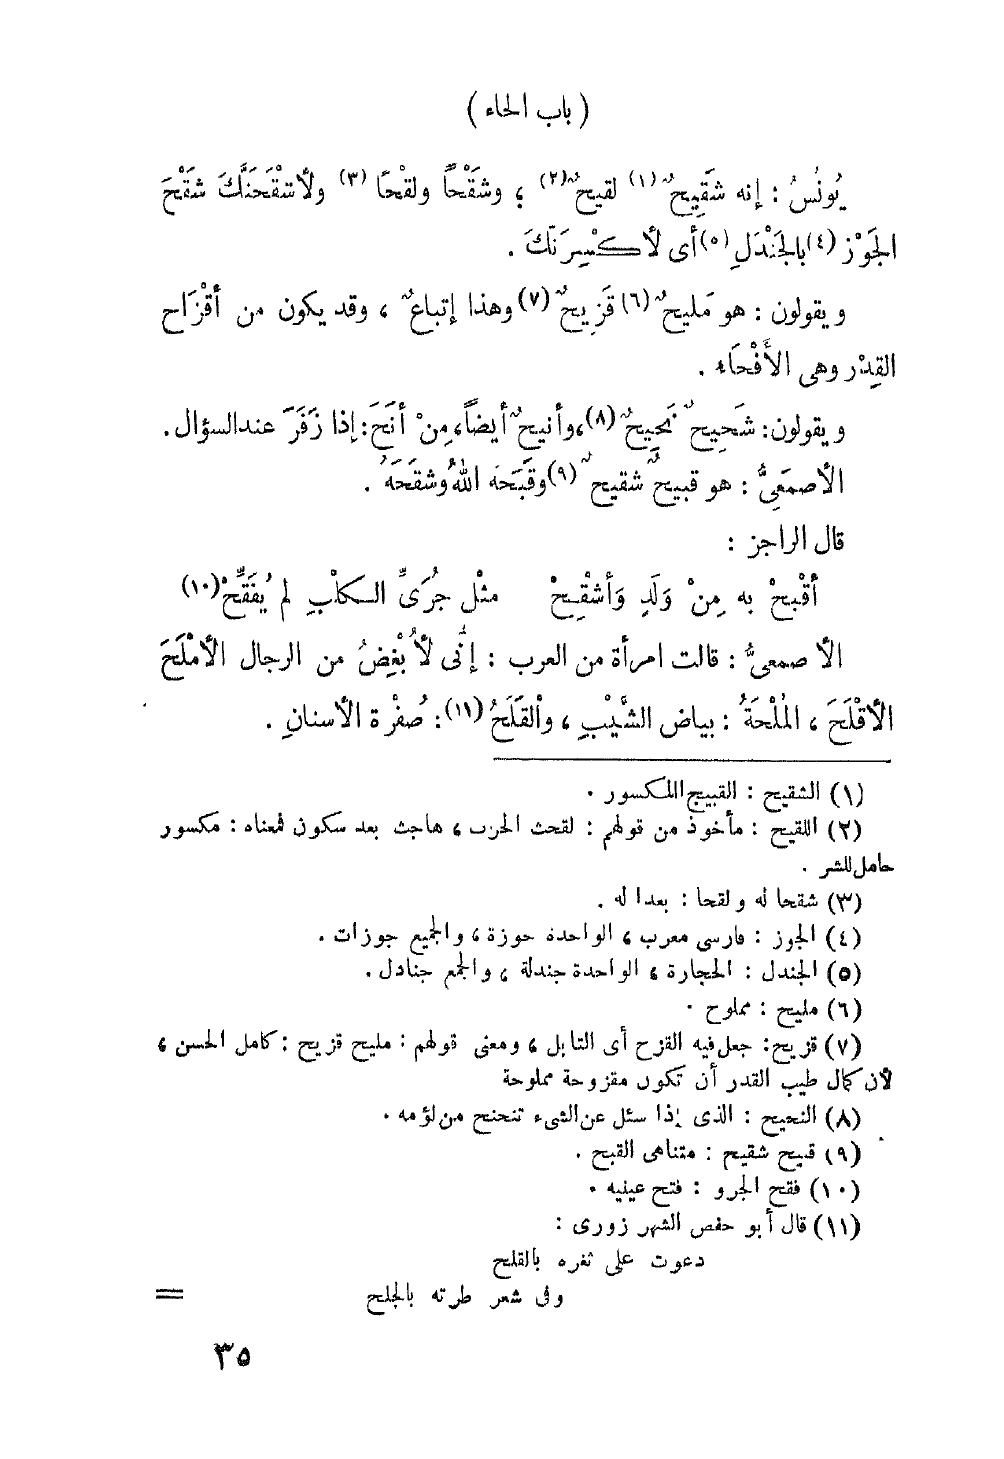 ( باب الحاء )
يُونُسُ : إنه شَقِيحٌ (١) لقيحٌ (٢) ، وشَقْحاً ولقْحًا (٣) ولأشْقَحَنَّكَ شَقْحَ
الجَوْز (٤) بالجَنْدَلِ (٥) أى لأكْسِرَنَّكَ .
ويقولون : هو مَليحٌ (٦) قَزِيحٌ (٧) وهذا إتباعٌ ، وقد يكون من أقْزَاح
القِدْر وهى الأَفْحَاء .
ويقولون : شَحِيحٌ نَحِيحٌ (٨) ، وأنيحٌ أيضاً ، مِنْ أنَحَ : إذا زَفَرَ عند السؤال .
الأصمَعِىُّ : هو قبيحٌ شقيحٌ (٩) وقَبَحَهُ اللهُ وشقَحَهُ .
قال الراجز :
أقْبِحْ به مِنْ وَلَدٍ وَأشْقِحْ مثْل جُرَىِّ الكلْبِ لم يُفَقِّحْ (١٠)
الأصمعىُّ : قالت امرأة من العرب : إنِّى لأُبْغِضُ من الرجال الأمْلَحَ
الأقْلَحَ ، المُلْحَةُ : بياض الشَّيْبِ ، والْقَلَحُ (١١) : صُفْرة الأسنانِ .
(١) الشقيح : القبيح المكسور .
(٢) اللقيح : مأخوذ من قولهم : لقحت الحرب ، هاجت بعد سكون فمعناه : مكسور
حامل للشر .
(٣) شقحا له ولقحا : بعدا له .
(٤) الجوز : فارسى معرب ، الواحدة حوزة ، والجميع جوزات .
(٥) الجندل : الحجارة ، الواحدة جندلة ، والجمع جنادل .
(٦) مليح : مملوح .
(٧) قزيح : جعل فيه القزح أى التابل ، ومعنى قولهم : مليح قزيح : كامل الحسن ،
لأن كمال طيب القدر أن تكون مقزوحة مملوحة
(٨) النحيح : الذى إذا سئل عن الشىء تنحنح من لؤمه .
(٩) قبيح شقيح : متناهى القبح .
(١٠) فقح الجرو : فتح عينيه .
(١١) قال أبو حفص الشهرزورى :
دعوت على ثغره بالقلح
وفى شعر طرته بالجلح =
٣٥